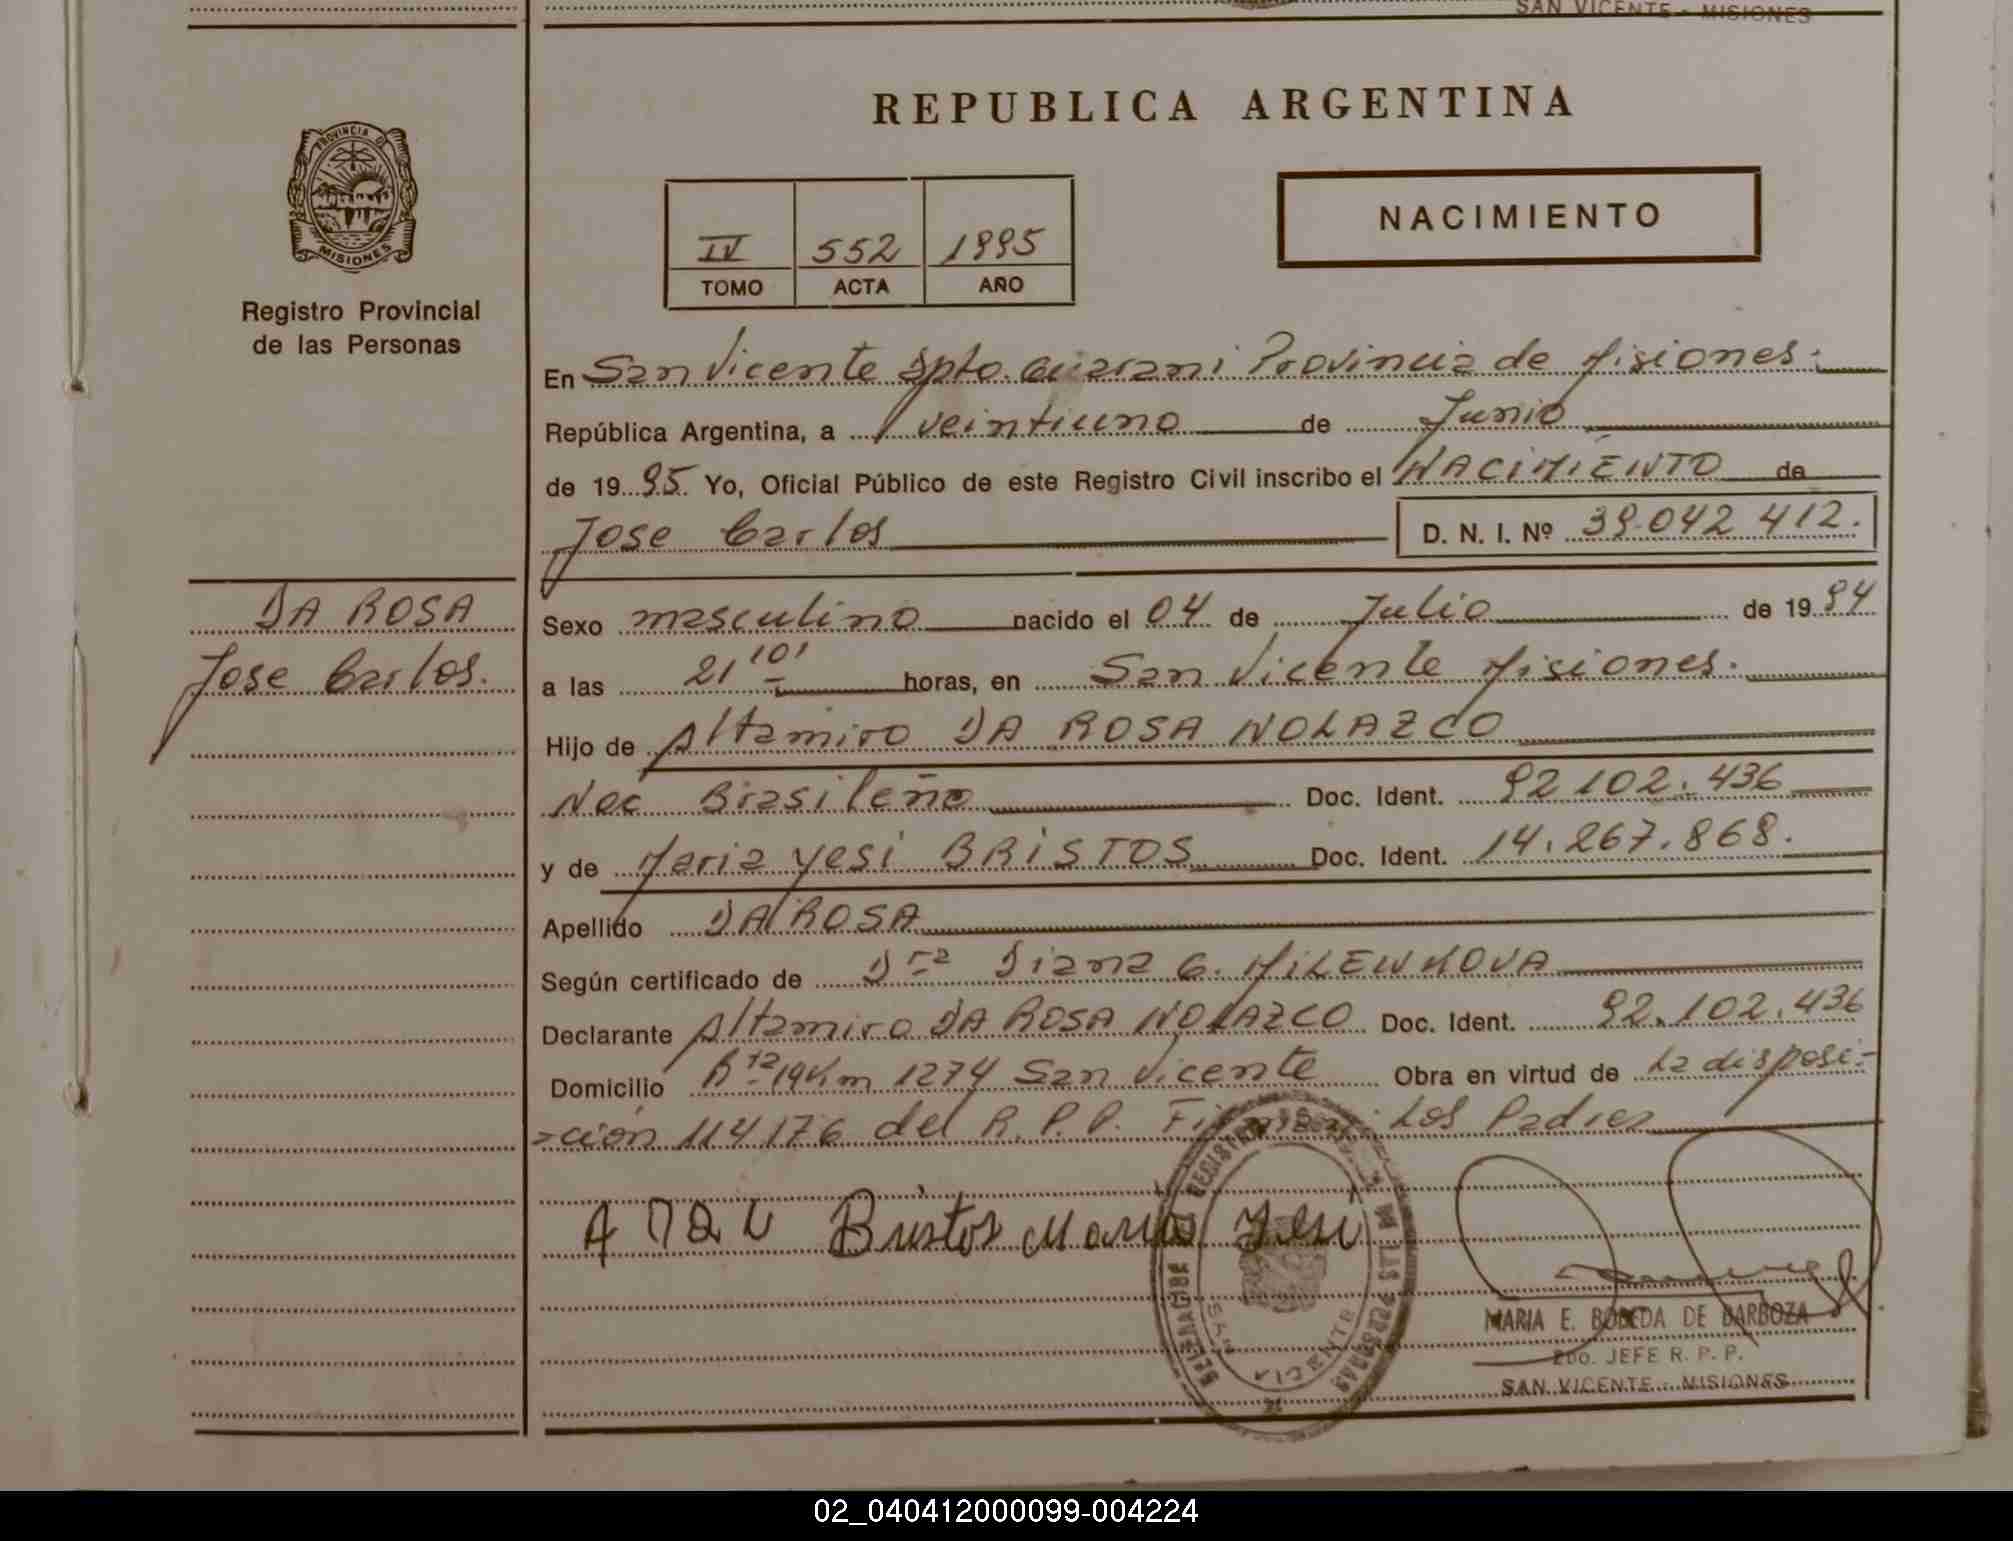 SAN VICENTE - MISIONES
REPUBLICA ARGENTINA
PROVINCIA DE
MISIONES
Registro Provincial
de las Personas
IV 552 1995
TOMO ACTA AÑO
NACIMIENTO
En San Vicente Dpto. Guarani Provincia de Misiones.
República Argentina, a veintiuno de Junio
de 1995. Yo, Oficial Público de este Registro Civil inscribo el NACIMIENTO de
Jose Carlos D. N. I. Nº 39.042 412.
DA ROSA
Jose Carlos.
Sexo masculino nacido el 04 de Julio de 1994
a las 21 10' horas, en San Vicente Misiones.
Hijo de Altamiro DA ROSA NOLAZCO
Nac Brasileño Doc. Ident. 92 102. 436
y de Maria Yesi BRISTOS Doc. Ident. 14.267.868.
Apellido DA ROSA
Según certificado de Dra Diana G.
Declarante Altamiro DA ROSA NOLAZCO Doc. Ident. 92.102.436
Domicilio 1274 San Vicente Obra en virtud de La disposi-
-ción 114176 del R. P. P. Los Padres
Bristos Maria Yesi
SAN VICENTE
LAS PERSONAS
MARIA E. BOBEDA DE BARBOZA
2DO. JEFE R. P. P.
SAN VICENTE - MISIONES
02_040412000099-004224